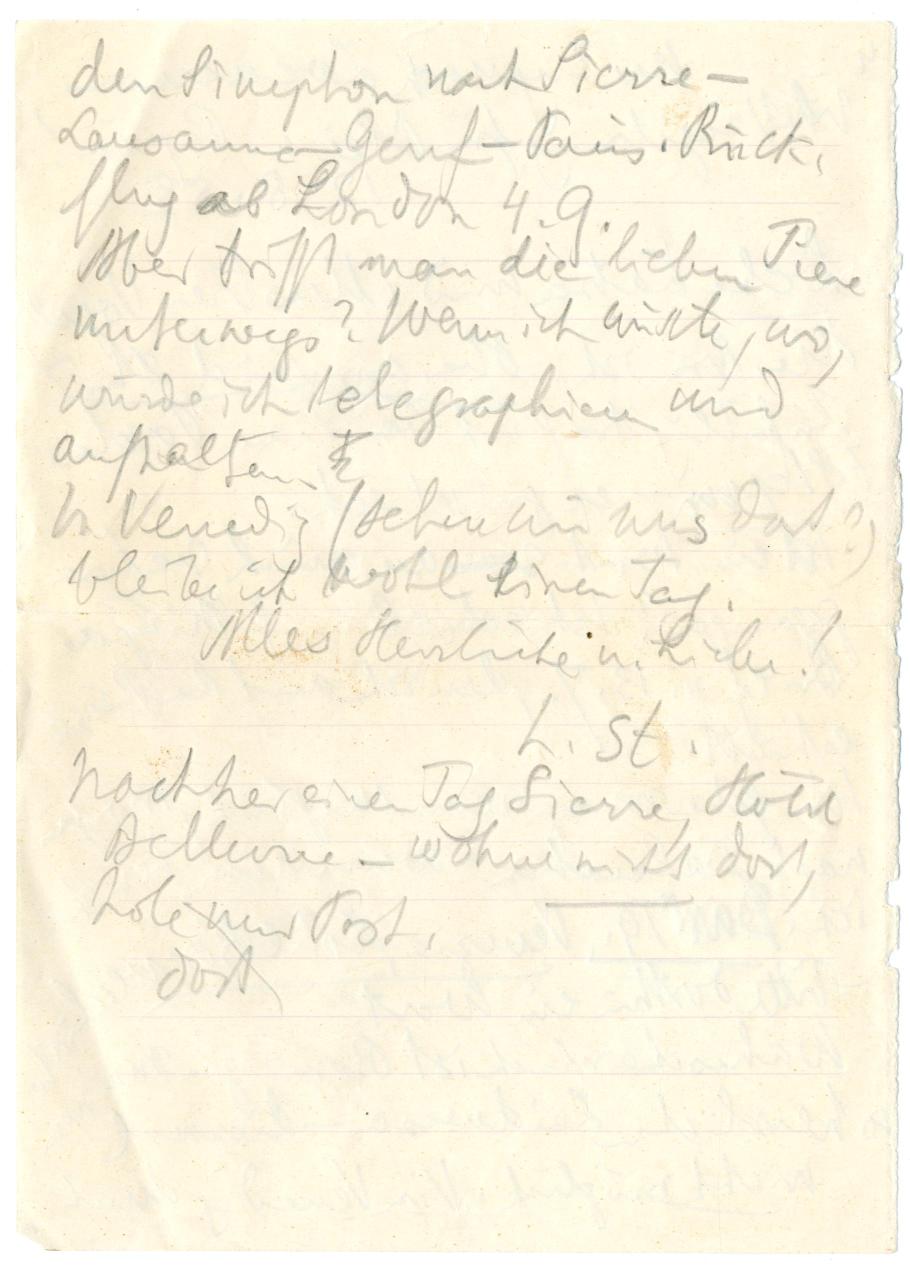 den Simplon nach Sierre –
Lausanne – Genf – Paris. Rück-
flug ab London 4. 9.
Aber trifft man die lieben
unterwegs? Wenn ich wüsste, wo,
würde ich telegraphieren und
aufhalten.
In Venedig (sehen wir uns dort?)
bleibe ich wohl einen Tag.
Alles Herzliche in Liebe!
L. St.
Nachher einen Tag Sierre, Hôtel
Bellevue – wohne nicht dort,
hole nur Post.
dort